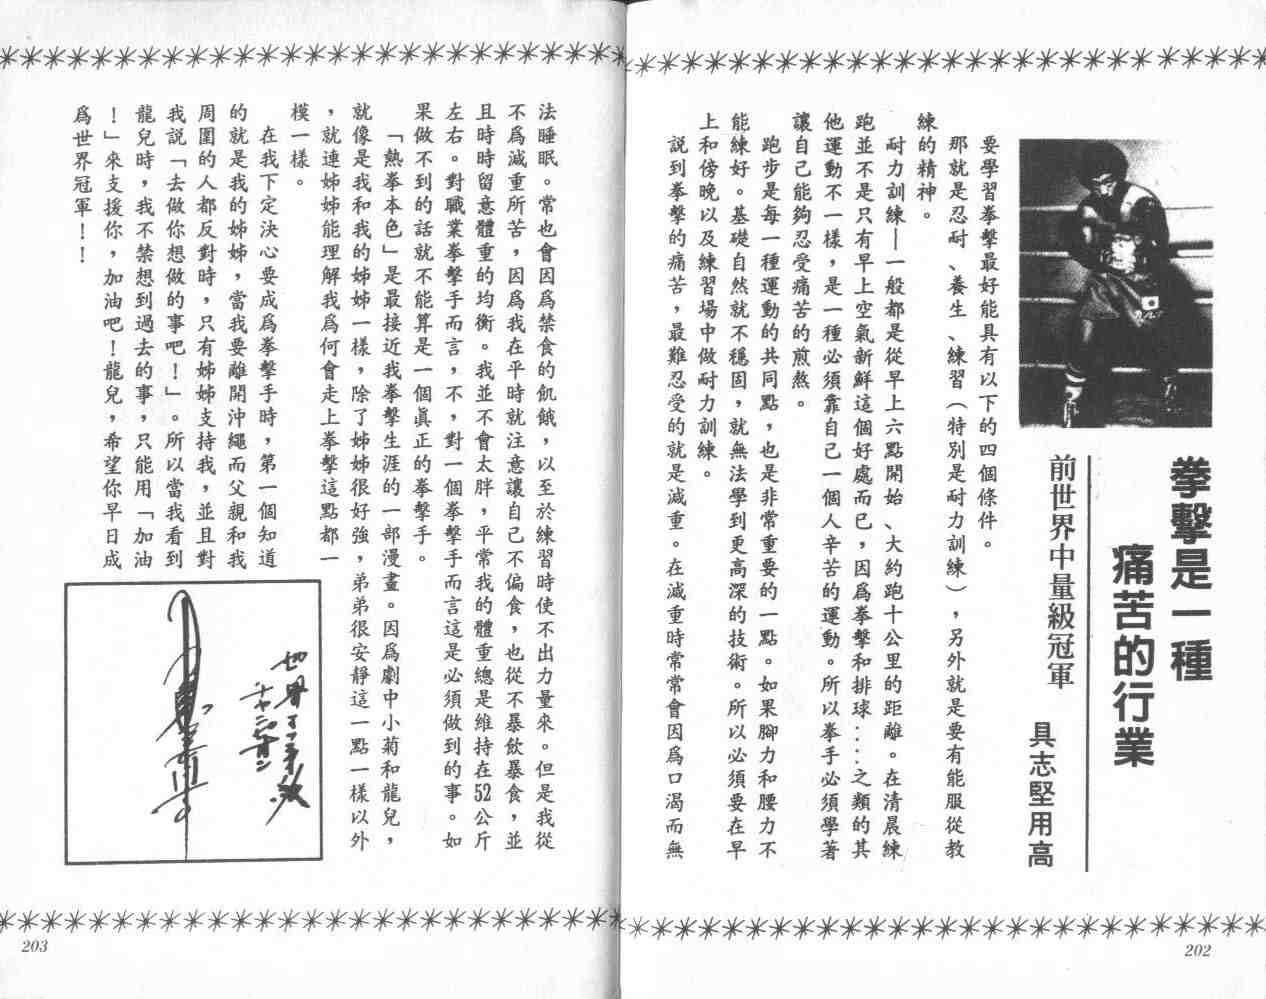 拳擊是一種
痛苦的行業
前世界中量級冠軍　具志堅用高
要學習拳擊最好能具有以下的四個條件。
那就是忍耐、養生、練習（特別是耐力訓練），另外就是要有能服從教
練的精神。
耐力訓練—一般都是從早上六點開始、大約跑十公里的距離。在清晨練
跑並不是只有早上空氣新鮮這個好處而已，因爲拳擊和排球‥‥之類的其
他運動不一樣，是一種必須靠自己一個人辛苦的運動。所以拳手必須學著
讓自己能夠忍受痛苦的煎熬。
跑步是每一種運動的共同點，也是非常重要的一點。如果腳力和腰力不
能練好。基礎自然就不穩固，就無法學到更高深的技術。所以必須要在早
上和傍晚以及練習場中做耐力訓練。
說到拳擊的痛苦，最難忍受的就是減重。在減重時常常會因爲口渴而無
202
法睡眠。常也會因爲禁食的飢餓，以至於練習時使不出力量來。但是我從
不爲減重所苦，因爲我在平時就注意讓自己不偏食，也從不暴飲暴食，並
且時時留意體重的均衡。我並不會太胖，平常我的體重總是維持在52公斤
左右。對職業拳擊手而言，不，對一個拳擊手而言這是必須做到的事。如
果做不到的話就不能算是一個眞正的拳擊手。
「熱拳本色」是最接近我拳擊生涯的一部漫畫。因爲劇中小菊和龍兒，
就像是我和我的姊姊一樣，除了姊姊很好強，弟弟很安靜這一點一樣以外
，就連姊姊能理解我爲何會走上拳擊這點都一
模一樣。
在我下定決心要成爲拳擊手時，第一個知道
的就是我的姊姊，當我要離開沖繩而父親和我
周圍的人都反對時，只有姊姊支持我，並且對
我說「去做你想做的事吧！」。所以當我看到
龍兒時，我不禁想到過去的事，只能用「加油
！」來支援你，加油吧！龍兒，希望你早日成
爲世界冠軍！！
203